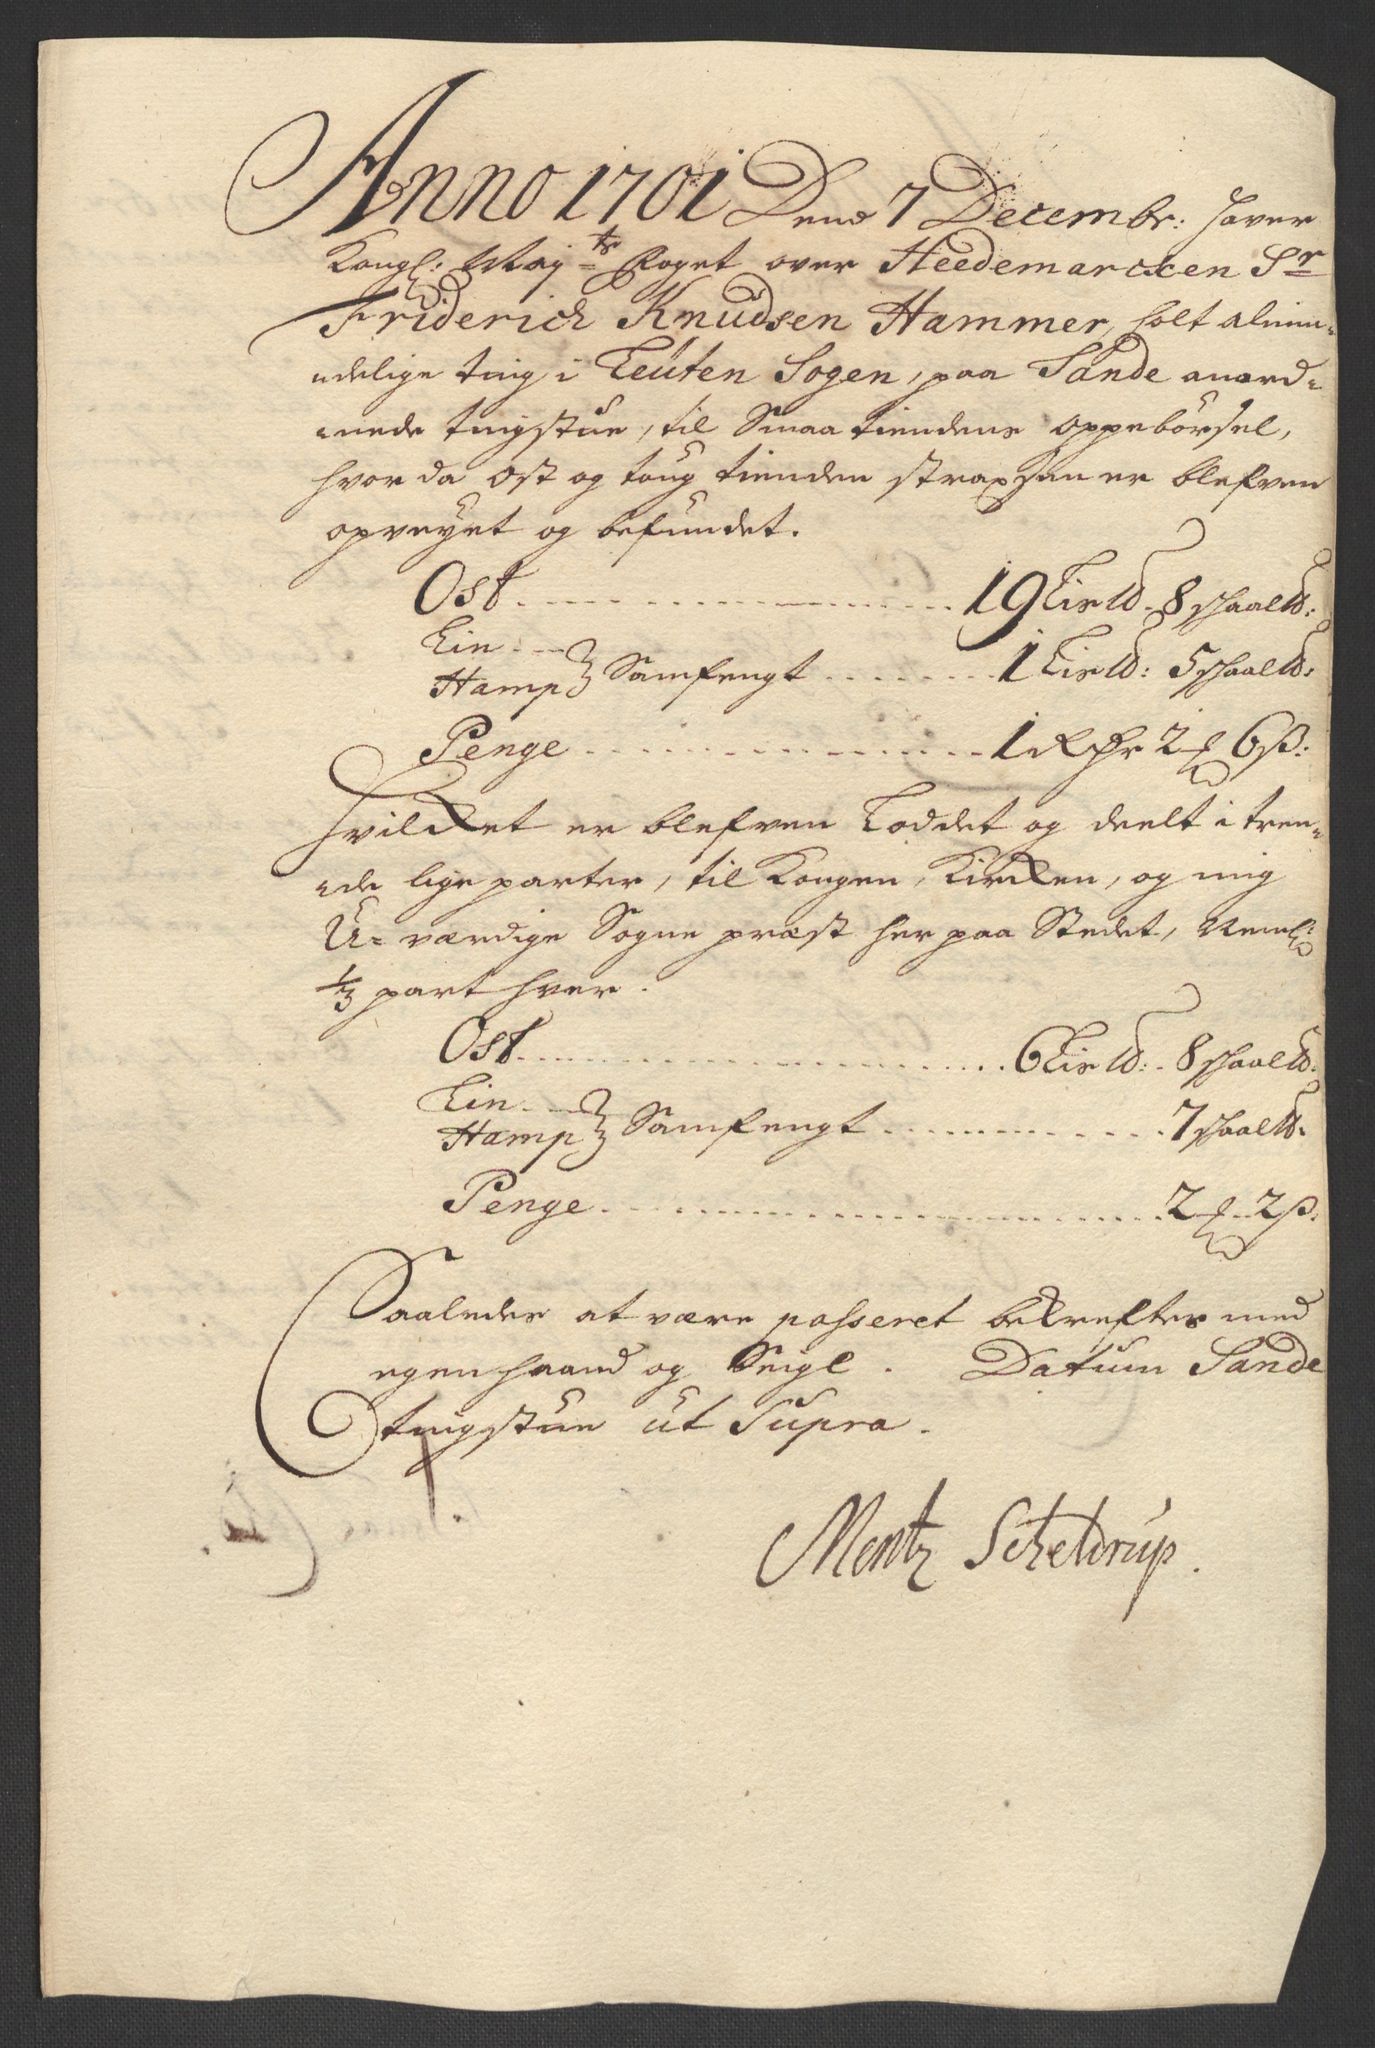 Anno 1701 Dend 7 Decembr: hafver
Kongl: Maytz foget over Heedemarcken Sr
Friderich Knudsen Hammer, holt almin-
delige ting i Leuten Sogen, paa Sande anord-
nede tingstue, til Smaa tiendens oppebörsel,
hvor da ost og toug tienden straxsen er blefven
opveyet og befundet.
Ost 19 Lis ℔. 8 schaal℔:
Lin
Hamp } Samfengt 1 Lis ℔: 5 schaal℔:
Penge 1 Rdr 2 ƺ 6 ß:
Hvilket er blefven Loddet og deelt i tren-
de lige parter, til Kongen, Kirken, og mig
U-værdige Sogne præst her paa Stedet, Neml:
1/3 part hver.
Ost 6 Lis ℔: 8 schaal℔:
Lin
Hamp } Samfengt 7 schaal℔:
Penge 2 ƺ 2 ß.
Saaledes at være passeret bekrefter med
egen haand og Seigl. Datum Sande
tingstue ut Supra.
Mentz Scheldrup.